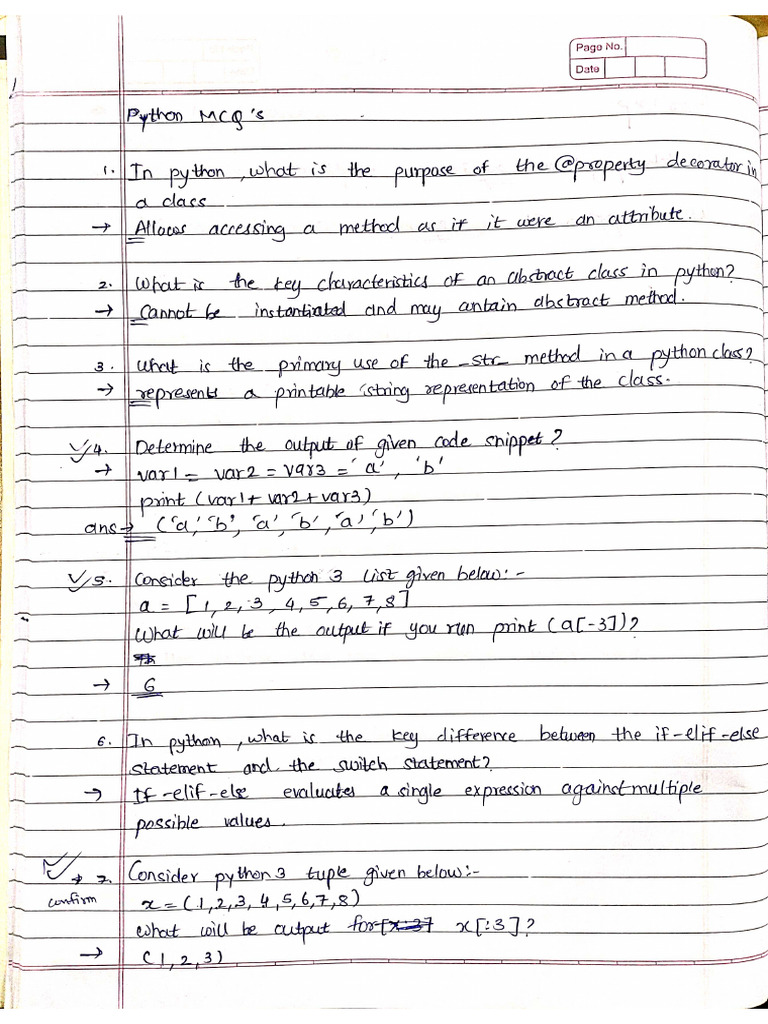 Page No.
Date
Python MCQ's
1. In python, what is the purpose of the @property decorator in
a class
→ Allows accessing a method as if it were an attribute.
2. What is the key characteristics of an abstract class in python?
→ Cannot be instantiated and may antain abstract method.
3. What is the primary use of the _str_ method in a python class?
→ represents a printable string representation of the class.
4. Determine the output of given code snippet?
→ var1 = var2 = var3 = 'a', 'b'
print (var1+ var2+var3)
ans → ('a' 'b', 'a', 'b', 'a', 'b')
5. Consider the python 3 list given below:-
a = [1,2,3,4,5,6,7,8]
What will be the output if you run print (a[-3])?
→ 6
6. In python, what is the key difference between the if-elif-else
statement and the switch statement?
→ If-elif-else evaluates a single expression against multiple
possible values.
→ 7. Consider python 3 tuple given below:-
confirm x = (1,2,3,4,5,6,7,8)
What will be output for x[:3]?
→ (1,2,3)